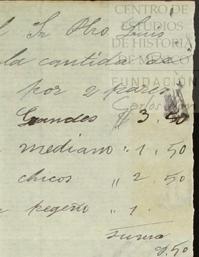 l Sr Pbro Luis
la cantida de
por 2 pares
Grandes $ 3.50
mediano " 1,50
chicos " 2,50
pegeño " 1
Suma
CENTRO DE
ESTUDIOS
DE HISTORIA
DE MÉXICO
FUNDACIÓN
Carlos